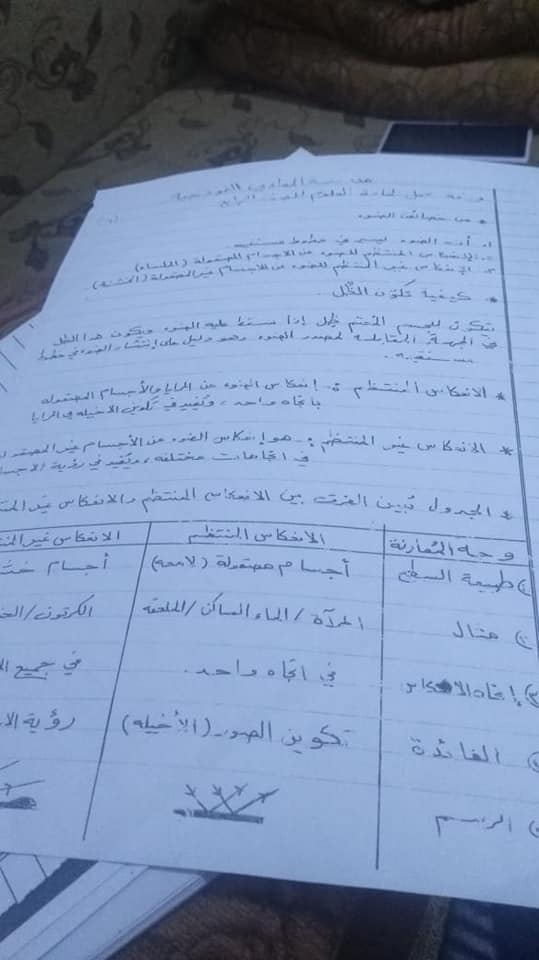 مدرسة الهادي النموذجية
ورقة عمل لمادة العلوم الصف الرابع
* من خصائص الضوء
١- أن الضوء يسير في خطوط مستقيمة
٢- الانعكاس المنتظم للضوء عن الأجسام المصقولة (الملساء)
٣- الإنعكاس غير المنتظم للضوء عن الأجسام غير المصقولة (الخشنة)
* كيفية تكون الظل.
يتكون للجسم المعتم ظل إذا سقط عليه الضوء ويكون هذا الظل
في الجهة المقابلة لمصدر الضوء وهو دليل على إنتشار الضوء في خطوط
مستقيمة.
* الانعكاس المنتظم : إنعكاس الضوء عن المرايا والأجسام المصقولة
باتجاه واحد، ويفيد في تكوين الاخيله في المرايا
* الانعكاس غير المنتظم : هو إنعكاس الضوء عن الأجسام غير المصقولة
في اتجاهات مختلفه، ويفيد في رؤية
* الجدول يبين الفرق بين الانعكاس المنتظم والانعكاس غير
وجه المقارنة الانعكاس المنتظم الانعكاس غير
١) طبيعة السطح أجسام مصقولة (لامعه) أجسام
٢) مثال المرآة / الماء الساكن / الملعقه الكرتون /
٣) إتجاه الانعكاس في اتجاه واحد. في جميع
الفائدة تكوين الصور (الأخيله) رؤية
الرسم